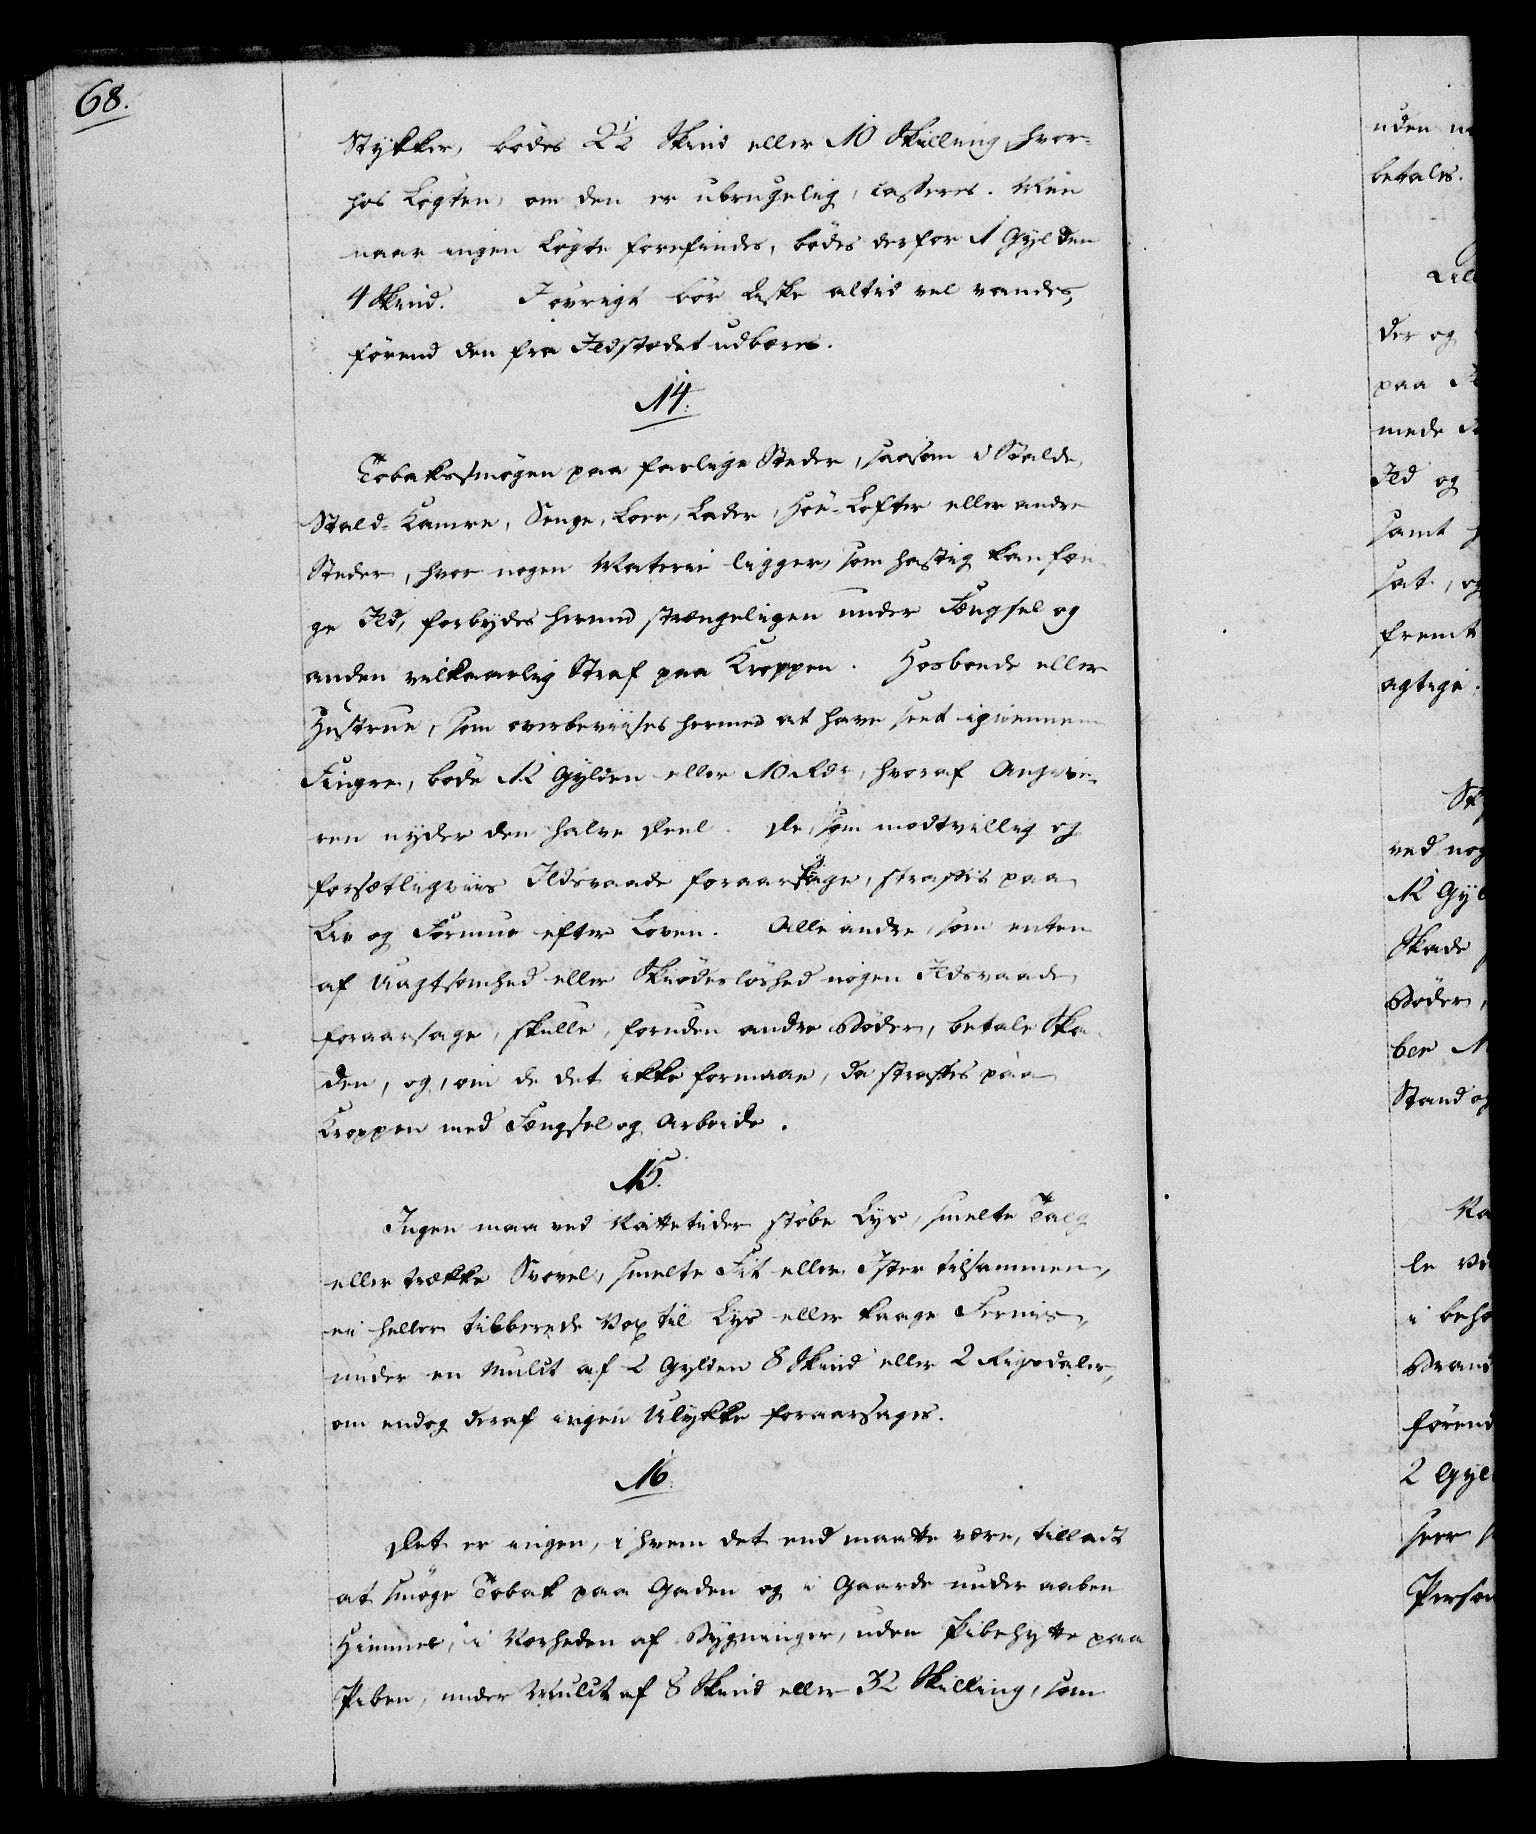 68.
Stykker, bödes 2½ Skind eller 10 Skilling, hvor-
hos Løgten, om den er ubrugelig, casseres. Men
naar ingen Løgte forefindes, bödes derfor 1 Gylden
4 Skind. Iövrigt bör Aske altid vel vandes,
førend den fra Ildstædet udbæres.
14.
Tobakssmögen paa farlige Steder, saasom i Stalde,
Stald-Kamre, Senge, Loer, Lader, Höe-Lofter eller andre
Steder, hvor nogen Materie ligger, som hastig kan fæn-
ge Ild, forbydes hermed strængeligen under Fængsel og
anden vilkaarlig Straf paa Kroppen. Hosbonde eller
Hustrue, som overbeviises hermed at have seet igiennem
Fingre, böde 12 Gylden eller 10 Rdr, hvoraf Angive-
ren nyder den halve Deel. De, som modtvillig og
forsætligviis Ildsvaade foraarsage, straffes paa
Liv og Formue efter Loven. Alle andre, som enten
af Uagtsomhed eller Skiödeslöshed nogen Ildsvaade
foraarsage, skulle, foruden andre Böder, betale Ska-
den, og, om de det ikke formaae, da straffes paa
Kroppen med Fængsel og Arbeide.
15.
Ingen maa ved Nattetider stöbe Lys, smelte Talg
eller trække Svovel, smelte Fit eller Ister tilsammen,
ei heller tilberede Vox til Lys eller kaage Fernis,
under en Mulct af 2 Gylden 8 Skind eller 2 Rigsdaler,
om endog deraf ingen Ulykke foraarsages.
16.
Det er ingen, i hvem det end maatte være, tilladt
at smöge Tobak paa Gaden og i Gaarde under aaben
Himmel, i Nærheden af Bygninger, uden Pibehytte paa
Piben, under Mulct af 8 Skind eller 32 Skilling, som
uden
betales.
der og
paa
mede
Ild og
samt
sat, og
fremt
agtige
ved nog
12 Gyl
Skade
Böder,
ber
Stand og
le
i beho
Brand
förend
2 Gyl
seer
Person